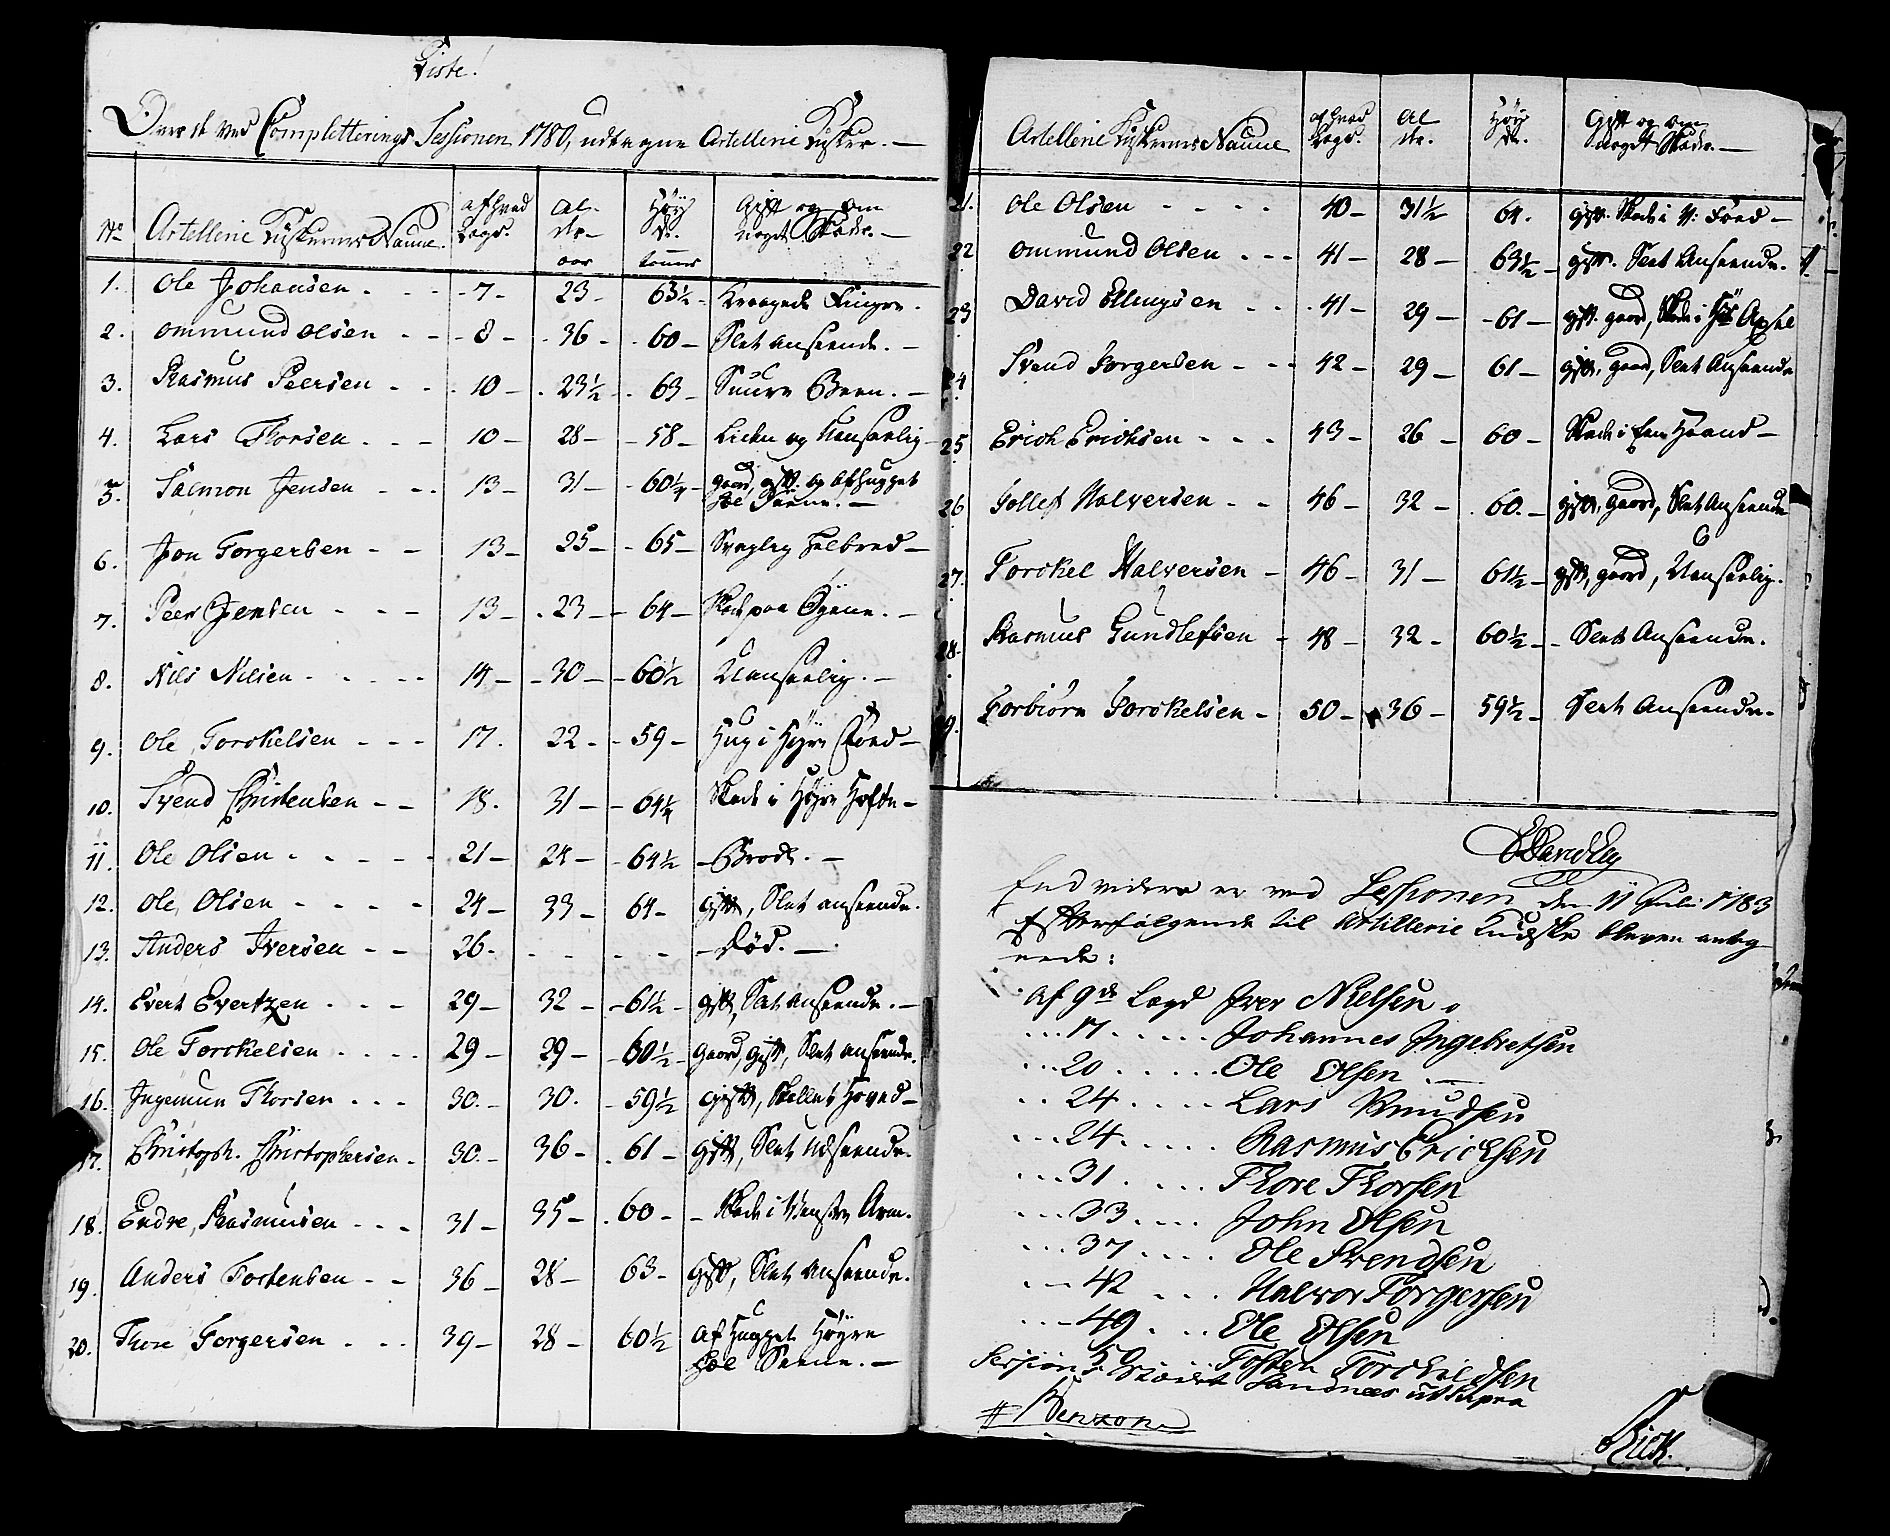 Liste!
Over de ved Completterings Sessionen 1780, udtagne Artellerie Kusker. —
No Artellerie Kuskernes Naune. af hvad Lægd. Al- der- aar Høyde. tommer Gift og om noget Skade. —
1. Ole Johansen - - - 7 - 23 - 63½ - Kragede Fingre.
2. Ommund Olsen - - - 8 - 36 - 60 - Slet anseende. —
3. Rasmus Peersen - - - 10 - 23½ - 63 - Smure Been. —
4. Lars Thorsen - - - 10 - 28 - 58 - Liden og Uanseelig
5. Salmon Jensen - - - 13 - 31 - 60¼ - gaard, gift og afhugget
Hæl Seene. —
6. Jon Torgersen - - 13 - 25 - 65 - Svaglig Helbred —
7. Peer Jensen - - - 13 - 23 - 64 - Skade paa Øyene. —
8. Nils Nilsen - - - - 14 - 30 - 60½ Uanseelig. —
9. Ole Torckelsen - - - 17. 22 - 59 - Hug i Høyre Foed —
10. Svend Christensen - - 18. 31 - 64¼ Skade i Høyre Hofte —
11. Ole Olsen - - - - - 21 - 24 - 64½ - Brock. —
12. Ole Olsen - - - - 24 - 33 - 64 - gift, Slet anseende.
13. Anders Iversen - - 26. - - - - - død. —
14. Evert Evertzen - - - 29 - 32 - 61½ - gift, Slet anseende. —
15. Ole Torckelsen - - - - 29 - 29 - 60½ - Gaard, gift, Slet anseende.
16. Ingemun Thorsen - - - 30. - 30. - 59½ gift, Skallet Hoved —
17. Christoph. Christophersen. 30. - 36 - 61 - gift, Slet Udseende.
18. Endre Rasmusen - - - 31 - 35 - 60 - - Skade i Venstre Arm.
19. Anders Tostensen - - 36 - 28 - 63 - Gift, Slet Anseende.
20. Thore Torgersen - - - 39 - 28 - 60½ af Hugget Høyre
Hæl Seene. —
Artellerie Kuskernes Naune af hvad Lægd. Al der. Høyde. Gift og om noget Skade. —
21. Ole Olsen - - - - 40 - 31½ 64. gift. Skade i V: Foed —
22 Ommund Olsen - - - 41 - 28 - 63½ - gift. Slet Anseende.
23 David Ellingsen - - - 41 - 29 - 61 - gift. gaard, Skade i Høy Axsel
24 Svend Torgersen - - - 42 - 29 - 61 - gift, gaard, Slet Anseende
25 Erich Erichsen - - - 43 - 26 - 60 - Skade i Een Haand —
26 Tollef Halversen - - 46 - 32 - 60. - gift, Gaard, Slet Anseende
27. Torckel Halversen - 46 - 31 - 61½ - gift, gaard, Uanseelig.
28. Rasmus Gundlefsen - 48 - 32 - 60½ - - Slet Anseende.
29. Torbiörn Torckelsen - 50 - 36 - 59½ - Slet Anseende.
End videre er ved Sessionen den 11 Juli 1783
Efterfølgende til Artillerie Kudske bleven anteg-
nede:
af 9de Lægd Iver Nielsen
...17..... Johannes Ingebretsen
...20..... Ole Olsen —
...24.... Lars Knudsen
...24..... Rasmus Erichsen
...31..... Thore Thorsen
...33.... John Olsen
...37.... Ole Svendsen
...42.... Halvor Torgersen
...49.... Ole Olsen
50 ... Tosten Torchildsen
Session Stædet Sandnæs ut Supra
Benzon